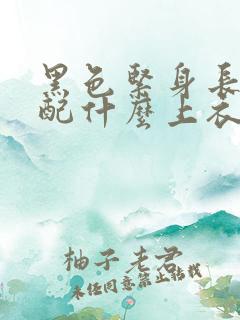 黑色緊身長
配什麼上衣
柚子老君
未經同意禁止轉載